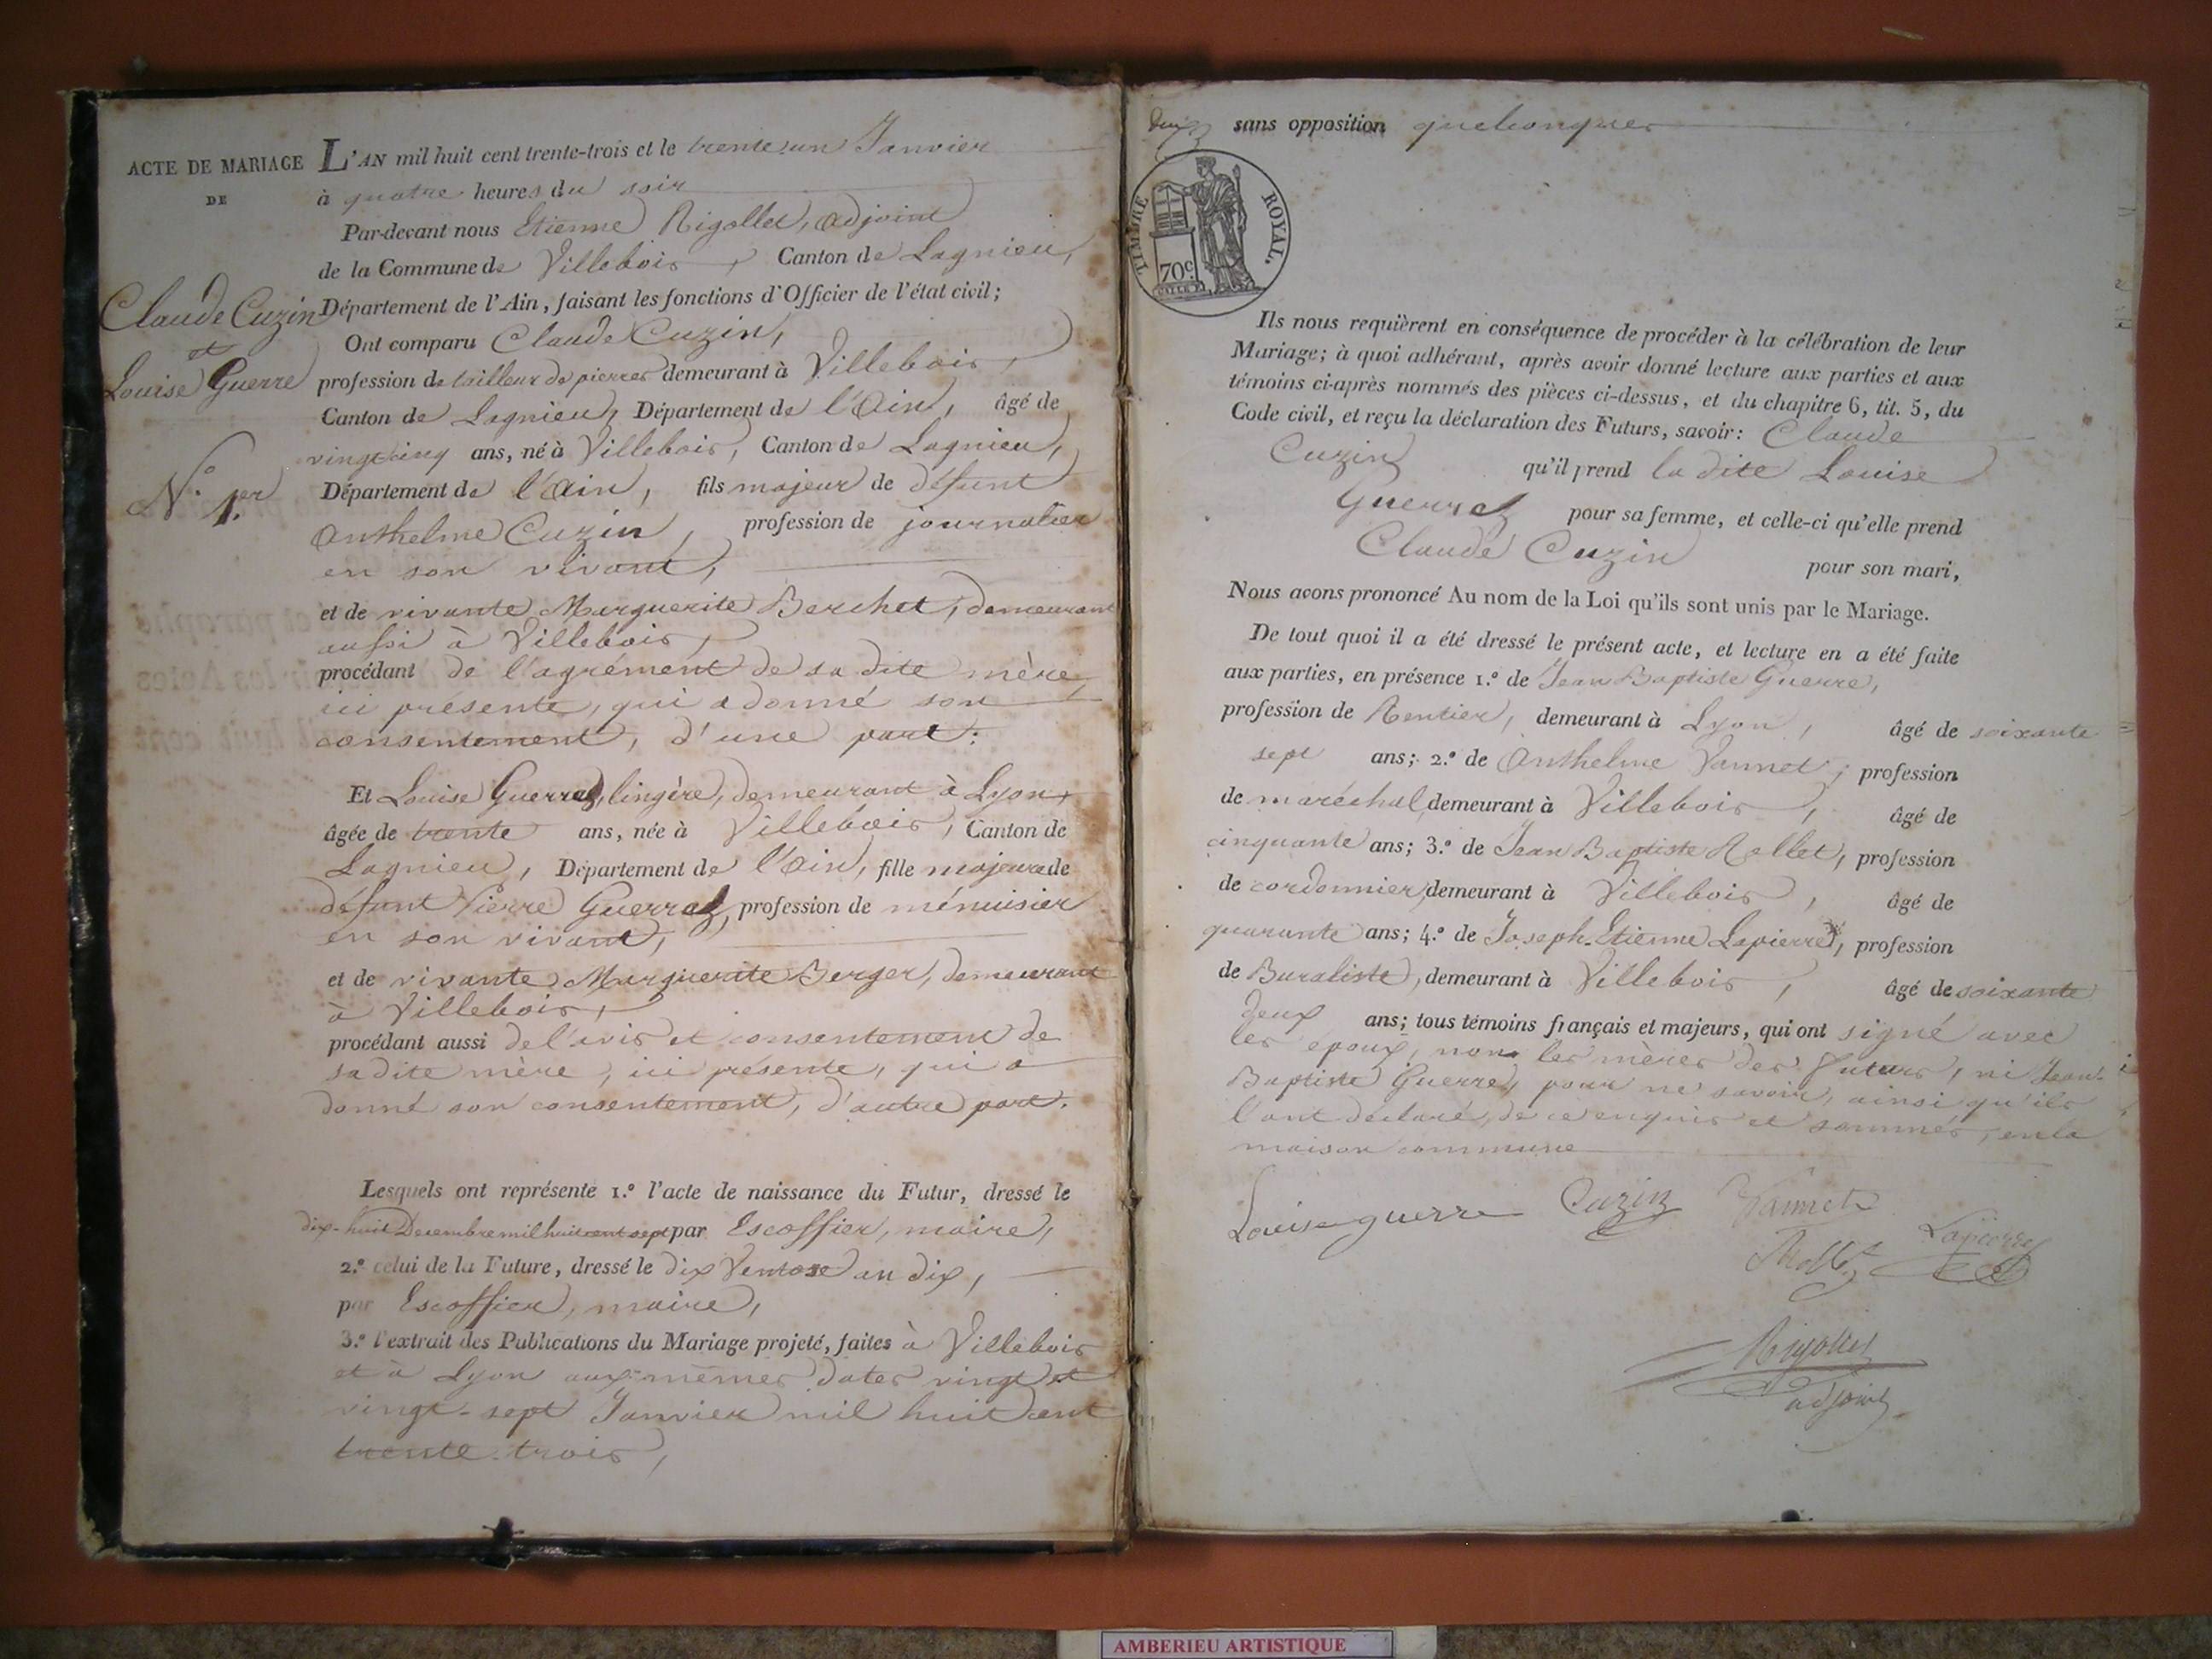 ACTE DE MARIAGE
DE
Claude Cuzin
et
Louise Guerre
N.o 1.er
L'AN mil huit cent trente-trois et le trente un Janvier
à quatre heures du soir
Par-devant nous Etienne Rigollet, adjoint
de la Commune de Villebois, Canton de Lagnieu,
Département de l'Ain, faisant les fonctions d'Officier de l'état civil;
Ont comparu Claude Cuzin,
profession de tailleur de pierres demeurant à Villebois,
Canton de Lagnieu, Département de l'Ain, âgé de
vingt cinq ans, né à Villebois, Canton de Lagnieu,
Département de l'Ain, fils majeur de défunt
Anthelme Cuzin, profession de journalier
en son vivant,
et de vivante Marguerite Berchet, demeurant
aussi à Villebois,
procédant de l'agrément de sa dite mère,
ici présente, qui a donné son
consentement, d'une part:
Et Louise Guerre, lingère, demeurant à Lyon,
âgée de trente ans, née à Villebois, Canton de
Lagnieu, Département de l'Ain, fille majeure de
défunt Pierre Guerre, profession de ménuisier
en son vivant,
et de vivante Marguerite Berger, demeurant
à Villebois,
procédant aussi de l'avis et consentement de
sa dite mère, ici présente, qui a
donné son consentement, d'autre part.
Lesquels ont représente 1.o l'acte de naissance du Futur, dressé le
dix-huit Decembre mil huit cent sept par Escoffier, maire,
2.o celui de la Future, dressé le dix Ventose an dix,
par Escoffier, maire,
3.o l'extrait des Publications du Mariage projeté, faites à Villebois
et à Lyon aux mêmes dates vingt et
vingt-sept Janvier mil huit cent
trente-trois,
deux
sans opposition quelconques
TIMBRE ROYAL.
70c.
Ils nous requièrent en conséquence de procéder à la célébration de leur
Mariage; à quoi adhérant, après avoir donné lecture aux parties et aux
témoins ci-après nommés des pièces ci-dessus, et du chapitre 6, tit. 5, du
Code civil, et reçu la déclaration des Futurs, savoir: Claude
Cuzin qu'il prend la dite Louise
Guerre pour sa femme, et celle-ci qu'elle prend
Claude Cuzin pour son mari,
Nous avons prononcé Au nom de la Loi qu'ils sont unis par le Mariage.
De tout quoi il a été dressé le présent acte, et lecture en a été faite
aux parties, en présence 1.o de Jean Baptiste Guerre,
profession de Rentier, demeurant à Lyon, âgé de soixante
sept ans; 2.o de Anthelme Vannet, profession
de maréchal, demeurant à Villebois, âgé de
cinquante ans; 3.o de Jean Baptiste Rollet, profession
de cordonnier, demeurant à Villebois, âgé de
quarante ans; 4.o de Joseph-Etienne Lapierre, profession
de Buraliste, demeurant à Villebois, âgé de soixante
deux ans; tous témoins français et majeurs, qui ont signé avec
les époux, non les mères des futurs, ni Jean-
Baptiste Guerre, pour ne savoir, ainsi qu'ils
l'ont déclaré, de ce enquis et sommés, en la
maison commune
Louise guerre Cuzin Vannet
Rollet Lapierre
Rigollet
adjoint
AMBERIEU ARTISTIQUE